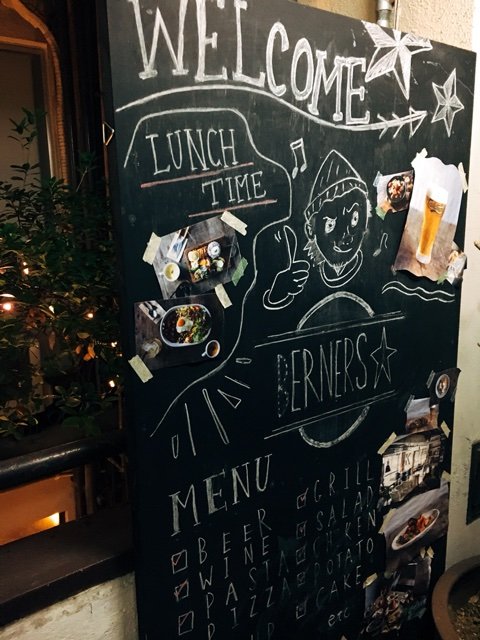 WELCOME
LUNCH
TIME
BERNERS
MENU
BEER
WINE
PASTA
PIZZA
GRILL
SALAD
CHIKEN
POTATO
CAKE
etc